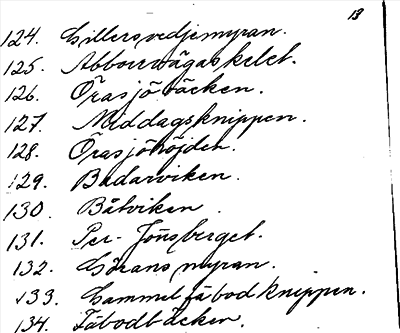 13
124. Gillersvedjemyran.
125. Abborrvågaskelet.
126. Örasjöbäcken.
127. Middagsknippen.
128. Örasjöhöjden.
129. Badarviken.
130. Båtviken.
131. Per-Jönsberget.
132. Göransmyran.
133. Gammelfäbodknippen.
134. Fäbodbäcken.